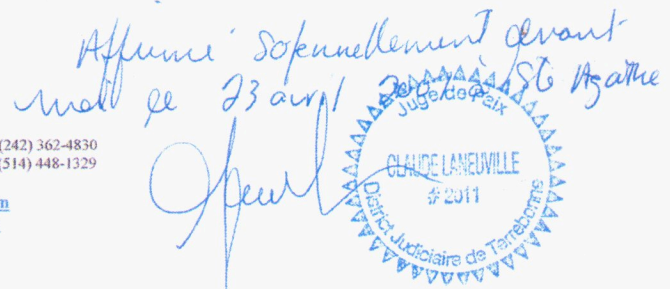 Affirmé solennellement devant
moi ce 23 avril à Ste Agathe
(242) 362-4830
(514) 448-1329
Juge de Paix
CLAUDE LANEUVILLE
# 2011
District Judiciaire de Terrebonne